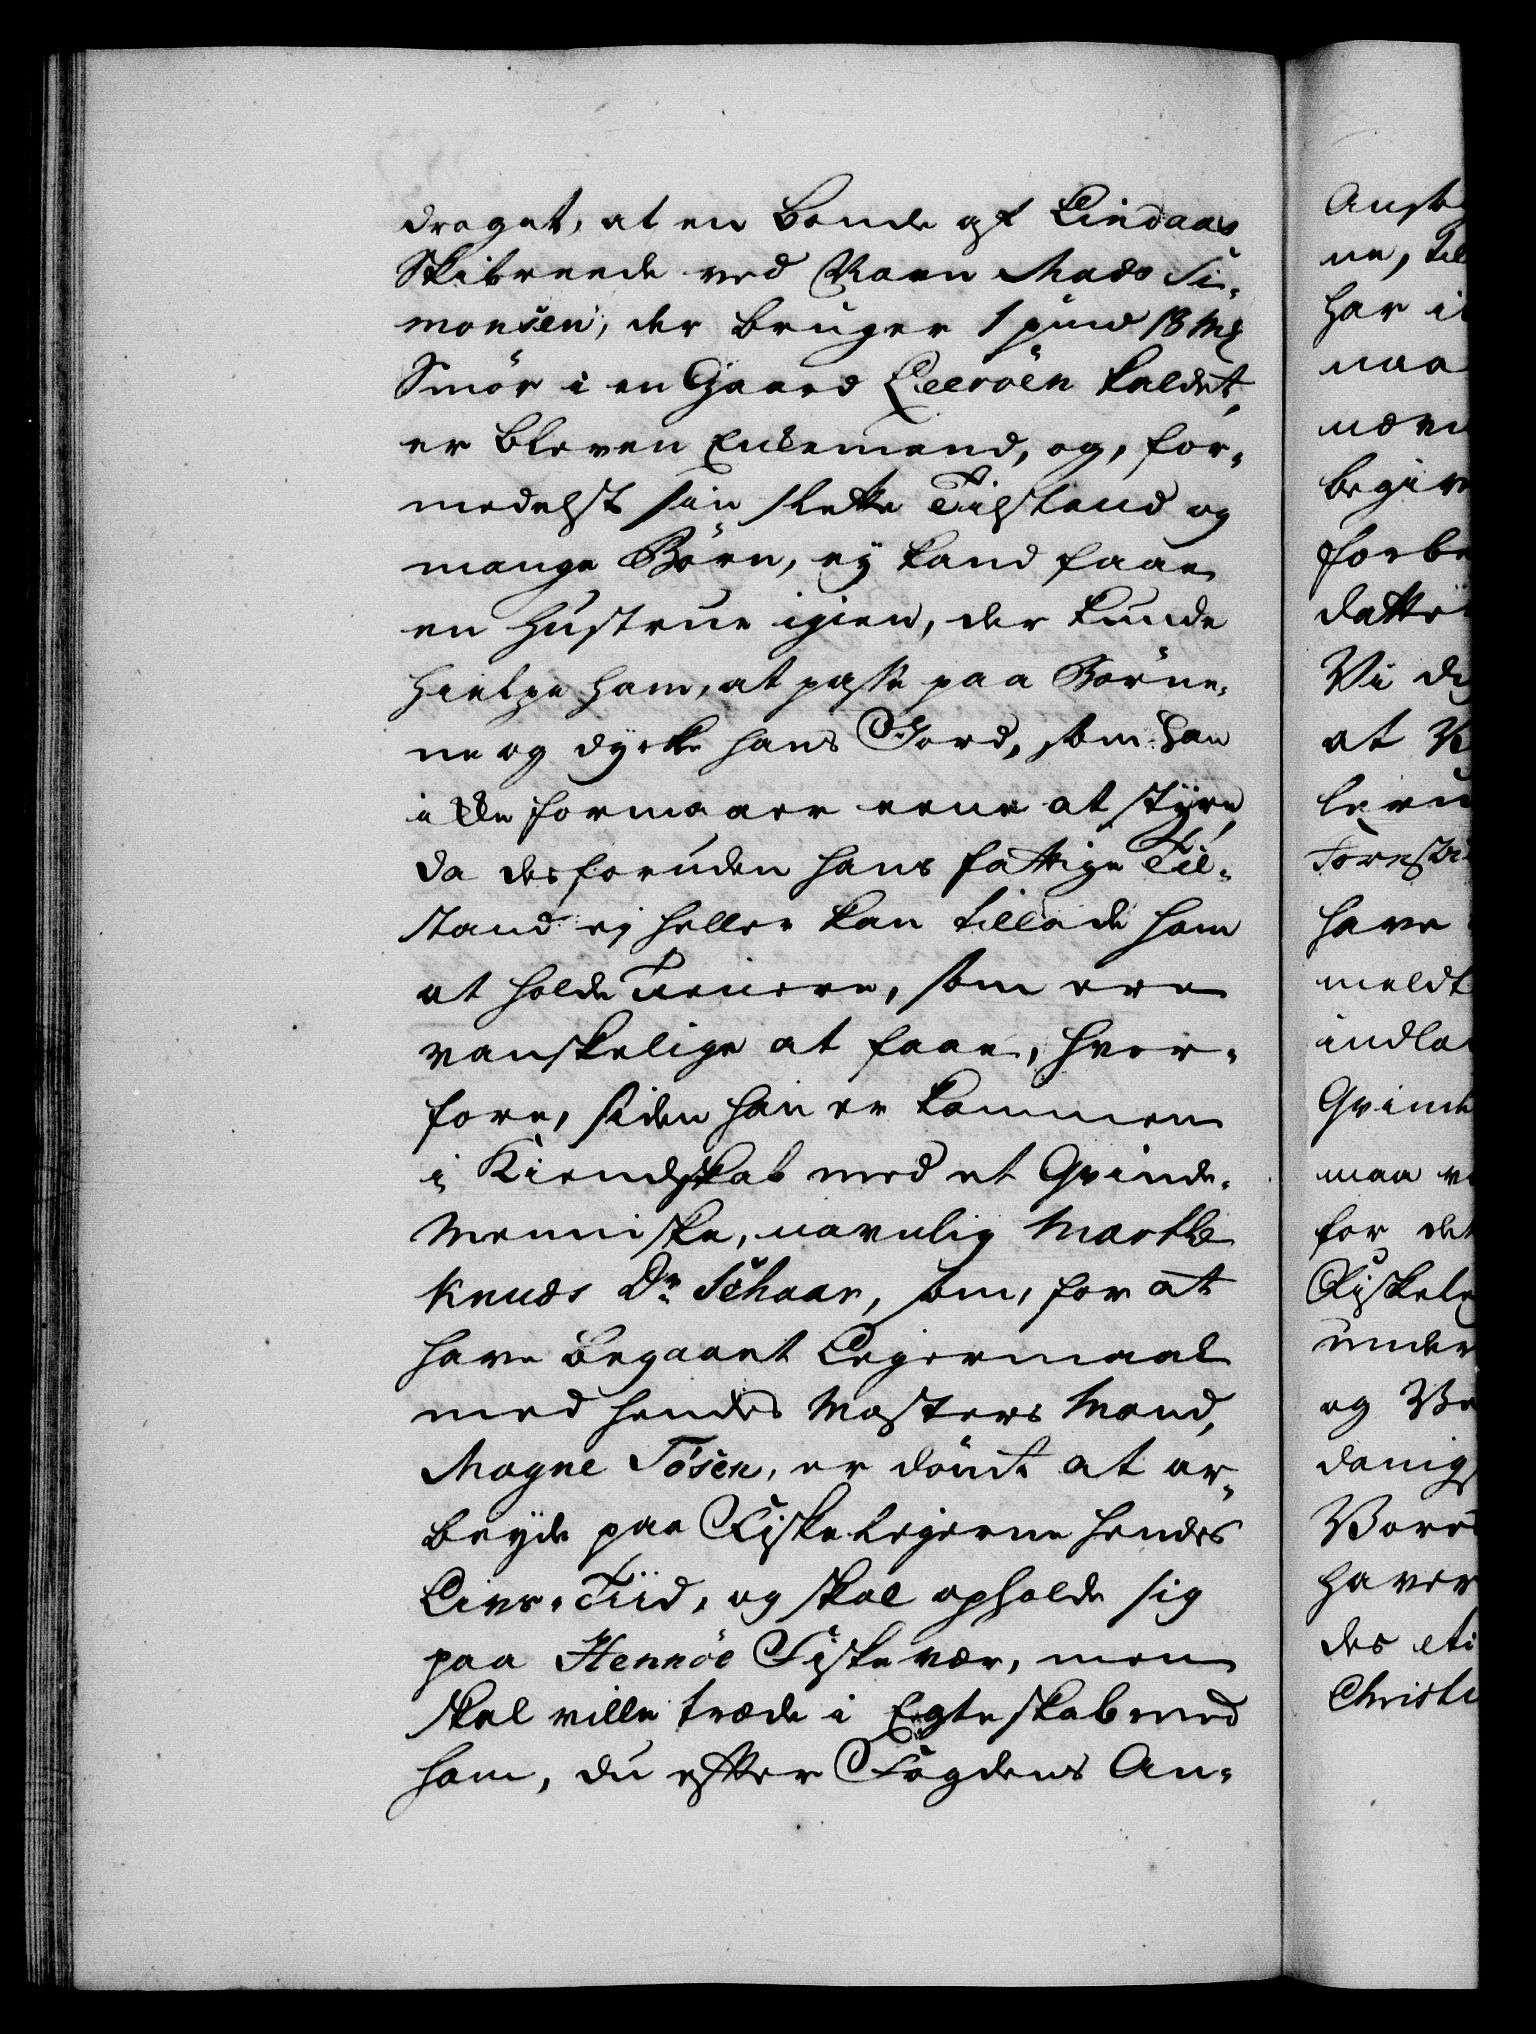 draget, at en Bonde af Lindaas
Skibreede ved Navn Mads Si-
monsen, der bruger 1 pund 18 Mk
Smør i en Gaard Leeröen kaldet,
er bleven Enkemand, og, for-
medelst sin slette Tilstand og
mange Börn, ey kand faae
en Hustrue igien, der kunde
hielpe ham, at passe paa Börne-
ne og dyrke hans Jord, som han
ikke formaaer eene at styre,
da desforuden hans fattige Til-
stand ej heller kan tillade ham
at holde Tienere, som ere
vanskelige at faae, hvor-
fore, siden han er kommen
i Kiendskab med et Qvinde-
Menniske, navnlig Marthe
Knuds Dr Schaar, som, for at
have begaaet Lejermaal
med hendes Mosters Mand,
Mogne Tösen, er dömt at ar-
beyde paa Fiskelejerne hendes
Livs-Tiid, og skal opholde sig
paa Hennöe Fiskevær, men
skal ville træde i Egteskab med
ham, du efter Fogdens An-
ne, til
har i
naa
begiv
Vi d
at
have
meldt
indla
Qvinde
maa
for det
Fiskele
under
og
danig
haver
des
Christi